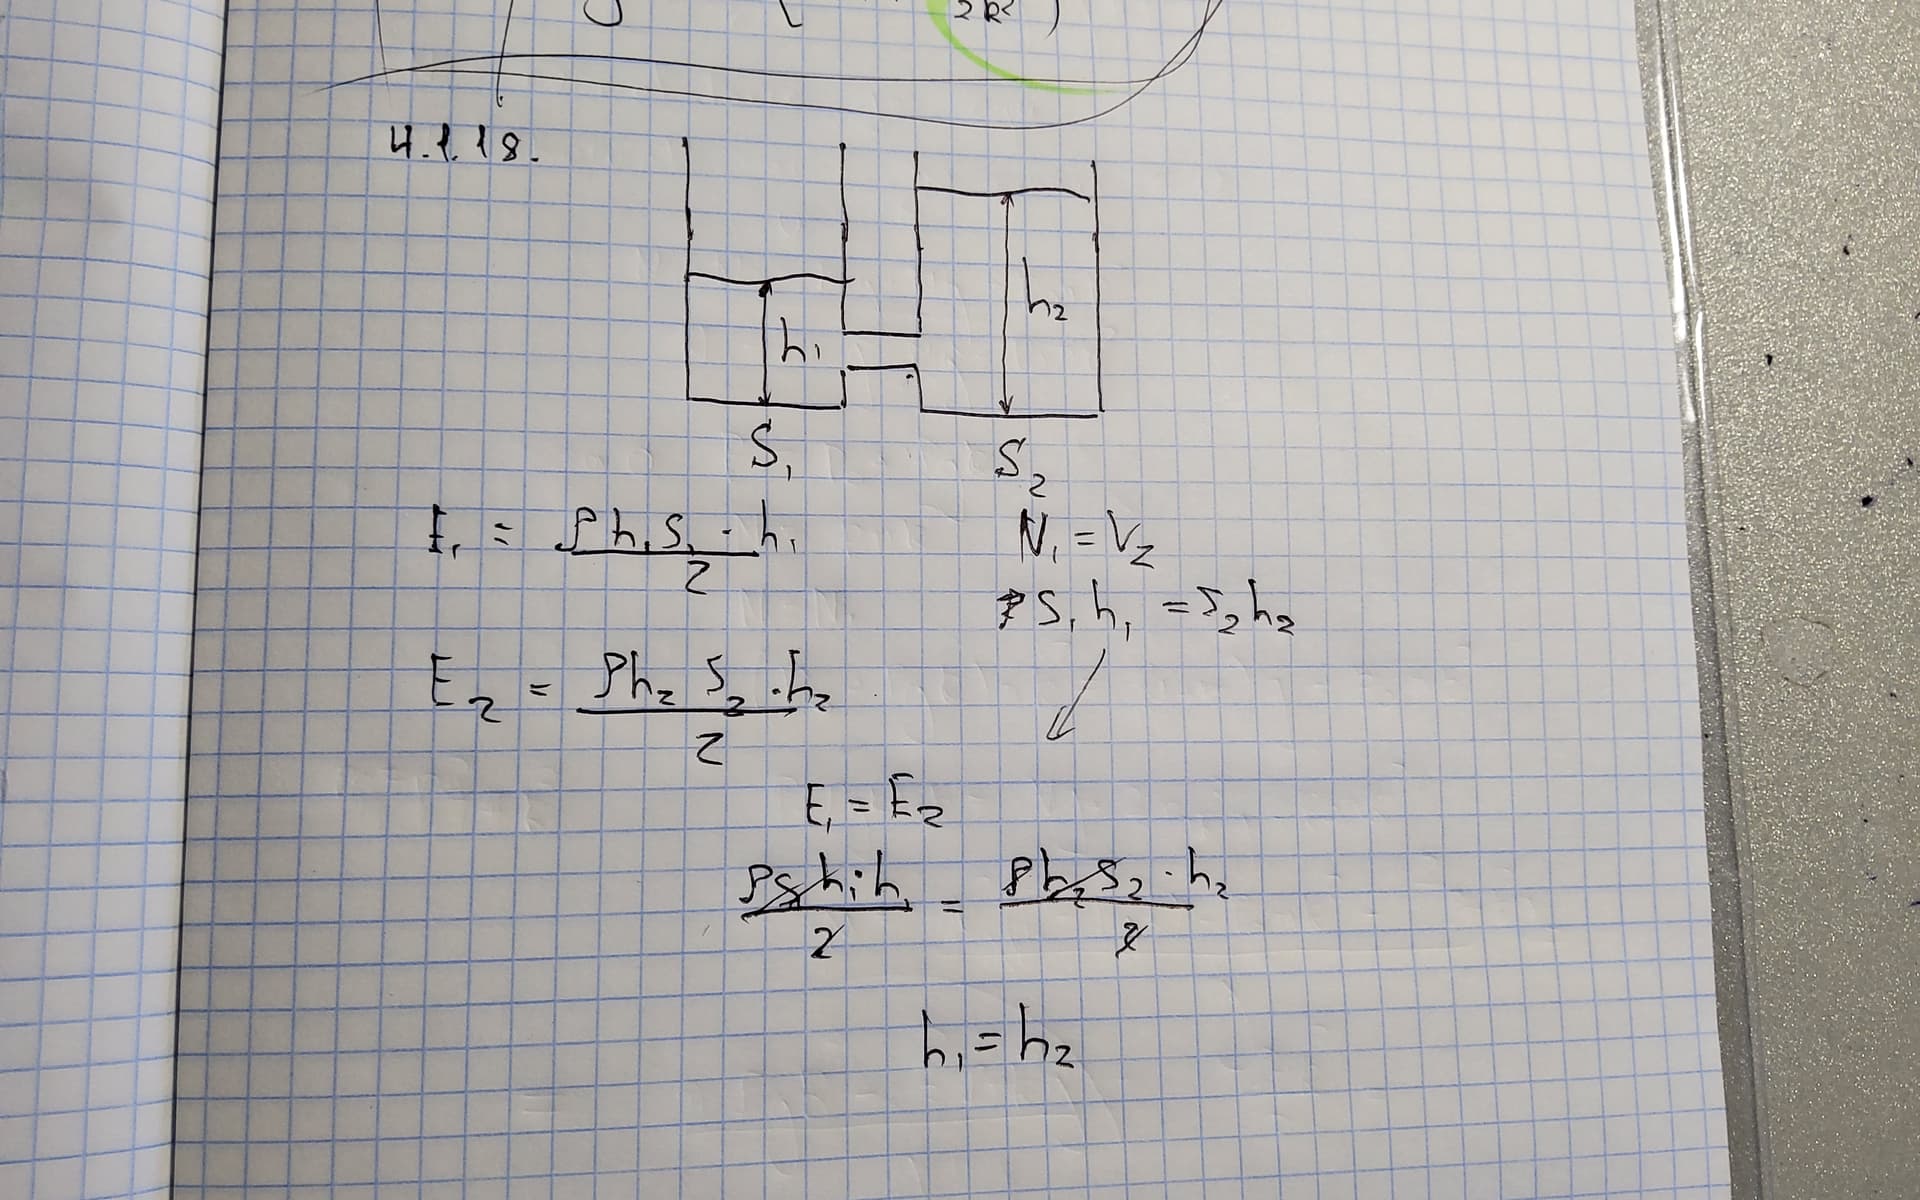 2k² )
4.1.18.
h₁
h₂
S₁
S₂
E₁ = ρh₁S₁·h₁ / 2
V₁ = V₂
S₁h₁ = S₂h₂
E₂ = ρh₂S₂·h₂ / 2
E₁ = E₂
ρS₁h₁·h₁ / 2 = ρh₂S₂·h₂ / 2
h₁ = h₂